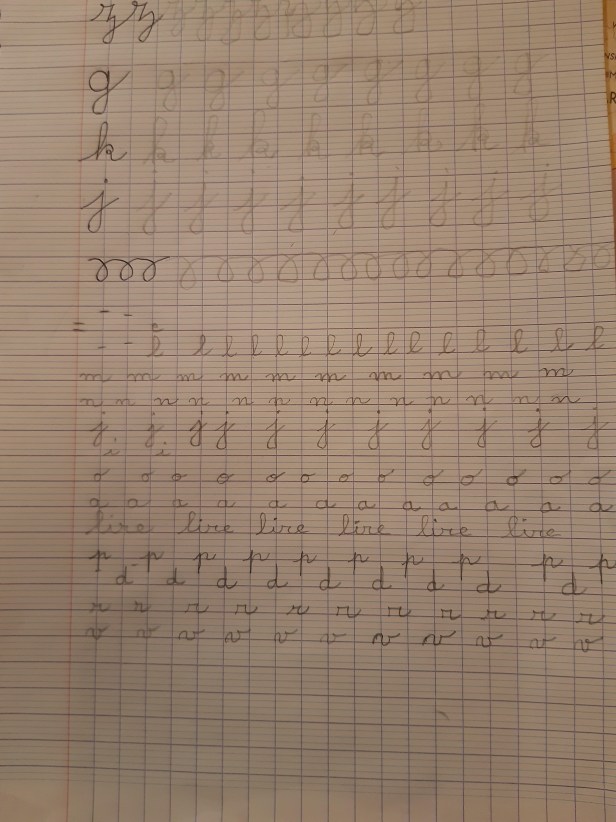 z z z z z z z z z
g g g g g g g g g
k k k k k k k k k
j j j j j j j j j j
l l l l l l l l l l l l l l
m m m m m m m m m m
n n n n n n n n n n n n n
j i j i g j j j j j j j j
o o o o o o o o o o o o o
a a a a a a a a a a a a
lire lire lire lire lire lire
p p p p p p p p p p
d d d d d d d d d
r r r r r r r r r r r
v v v v v v v v v v v